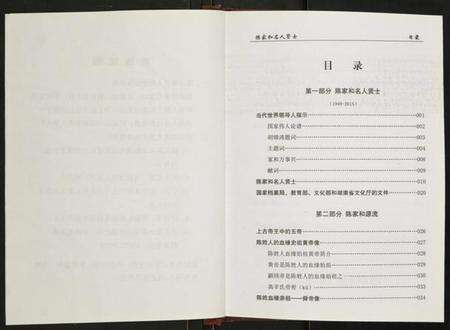 陈家和名人贤士
目录
目 录
第一部分 陈家和名人贤士
(1949-2015)
当代世界领导人福示 001
国家伟人论谱 002
胡锦涛题词 003
主题词 004
家和万事兴 008
献词 009
陈家和名人贤士 010
国家档案局、教育部、文化部和湖南省文化厅的文件 020
第二部分 陈家和源流
上古帝王中的五帝 026
陈姓人的血缘史祖黄帝像 027
陈姓人血缘始祖黄帝简介 028
黄帝是陈姓人的血缘始祖 029
颛顼帝是陈姓人的血缘始祖之 030
高辛氏帝喾(kù) 033
陈姓血缘亲祖——舜帝像 034